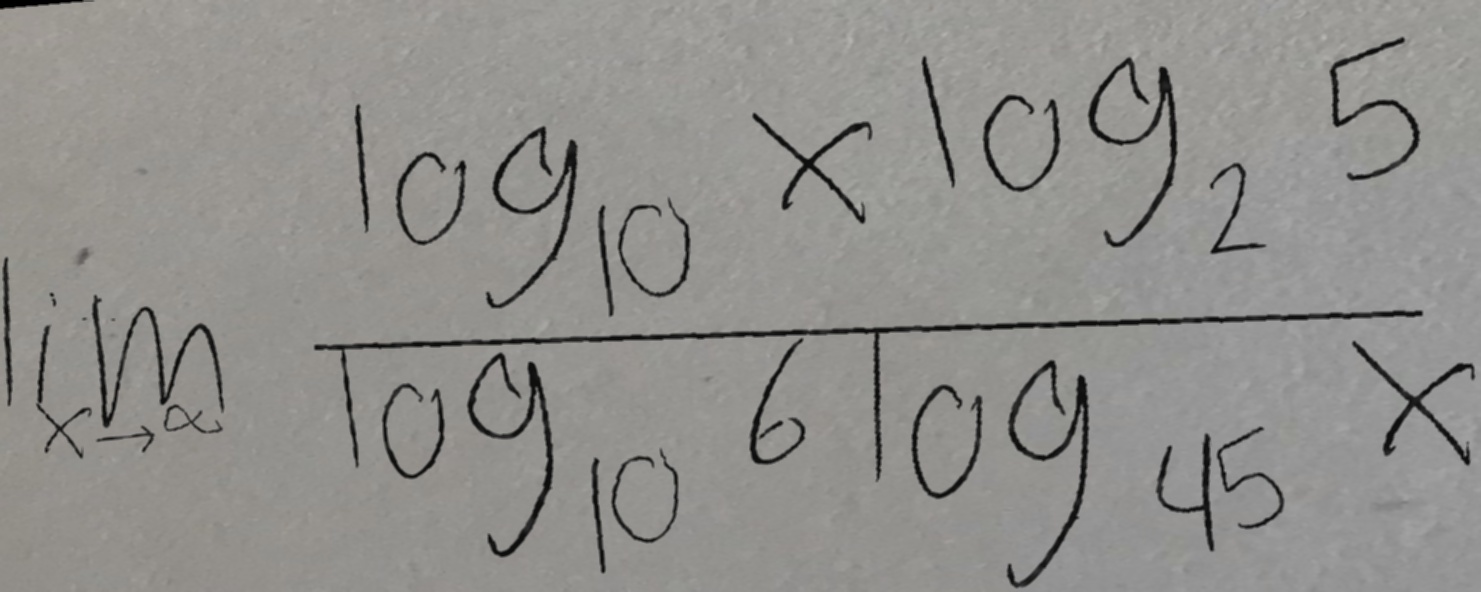 lim_{x→∝} \frac{log_{10} x log_2 5}{log_{10} 6 log_{45} x}